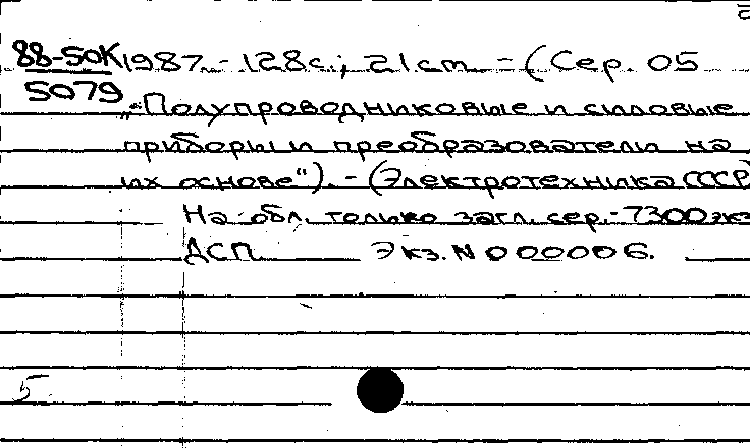 88-50К 1987. - 128с.; 21 см. - (Сер. 05
5079 „Полупроводниковые и силовые
приборы и преобразователи на
их основе"). - (Электротехника СССР
На обл. только загл. сер. - 7300 экз
ДСП Экз. N 000006.
5